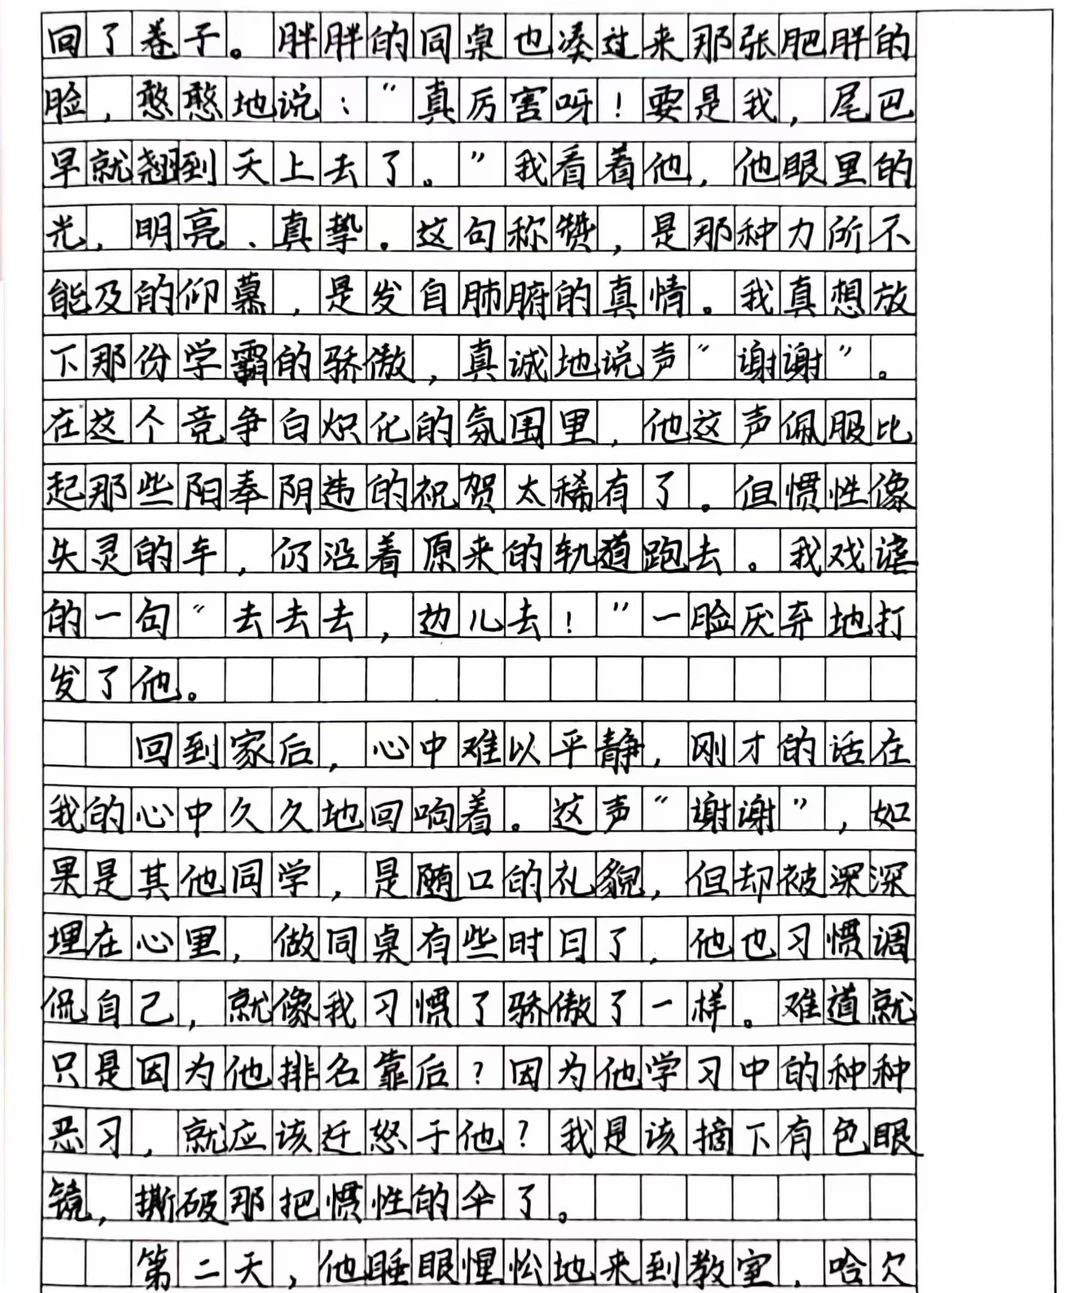 回了卷子。胖胖的同桌也凑过来那张肥胖的
脸，憨憨地说：“真厉害呀！要是我，尾巴
早就翘到天上去了。”我看着他，他眼里的
光，明亮、真挚。这句称赞，是那种力所不
能及的仰慕，是发自肺腑的真情。我真想放
下那份学霸的骄傲，真诚地说声“谢谢”。
在这个竞争白炽化的氛围里，他这声佩服比
起那些阳奉阴违的祝贺太稀有了。但惯性像
失灵的车，仍沿着原来的轨道跑去。我戏谑
的一句“去去去，边儿去！”一脸厌弃地打
发了他。
回到家后，心中难以平静，刚才的话在
我的心中久久地回响着。这声“谢谢”，如
果是其他同学，是随口的礼貌，但却被深深
埋在心里，做同桌有些时日了，他也习惯调
侃自己，就像我习惯了骄傲了一样。难道就
只是因为他排名靠后？因为他学习中的种种
恶习，就应该迁怒于他？我是该摘下有色眼
镜，撕破那把惯性的伞了。
第二天，他睡眼惺忪地来到教室，哈欠